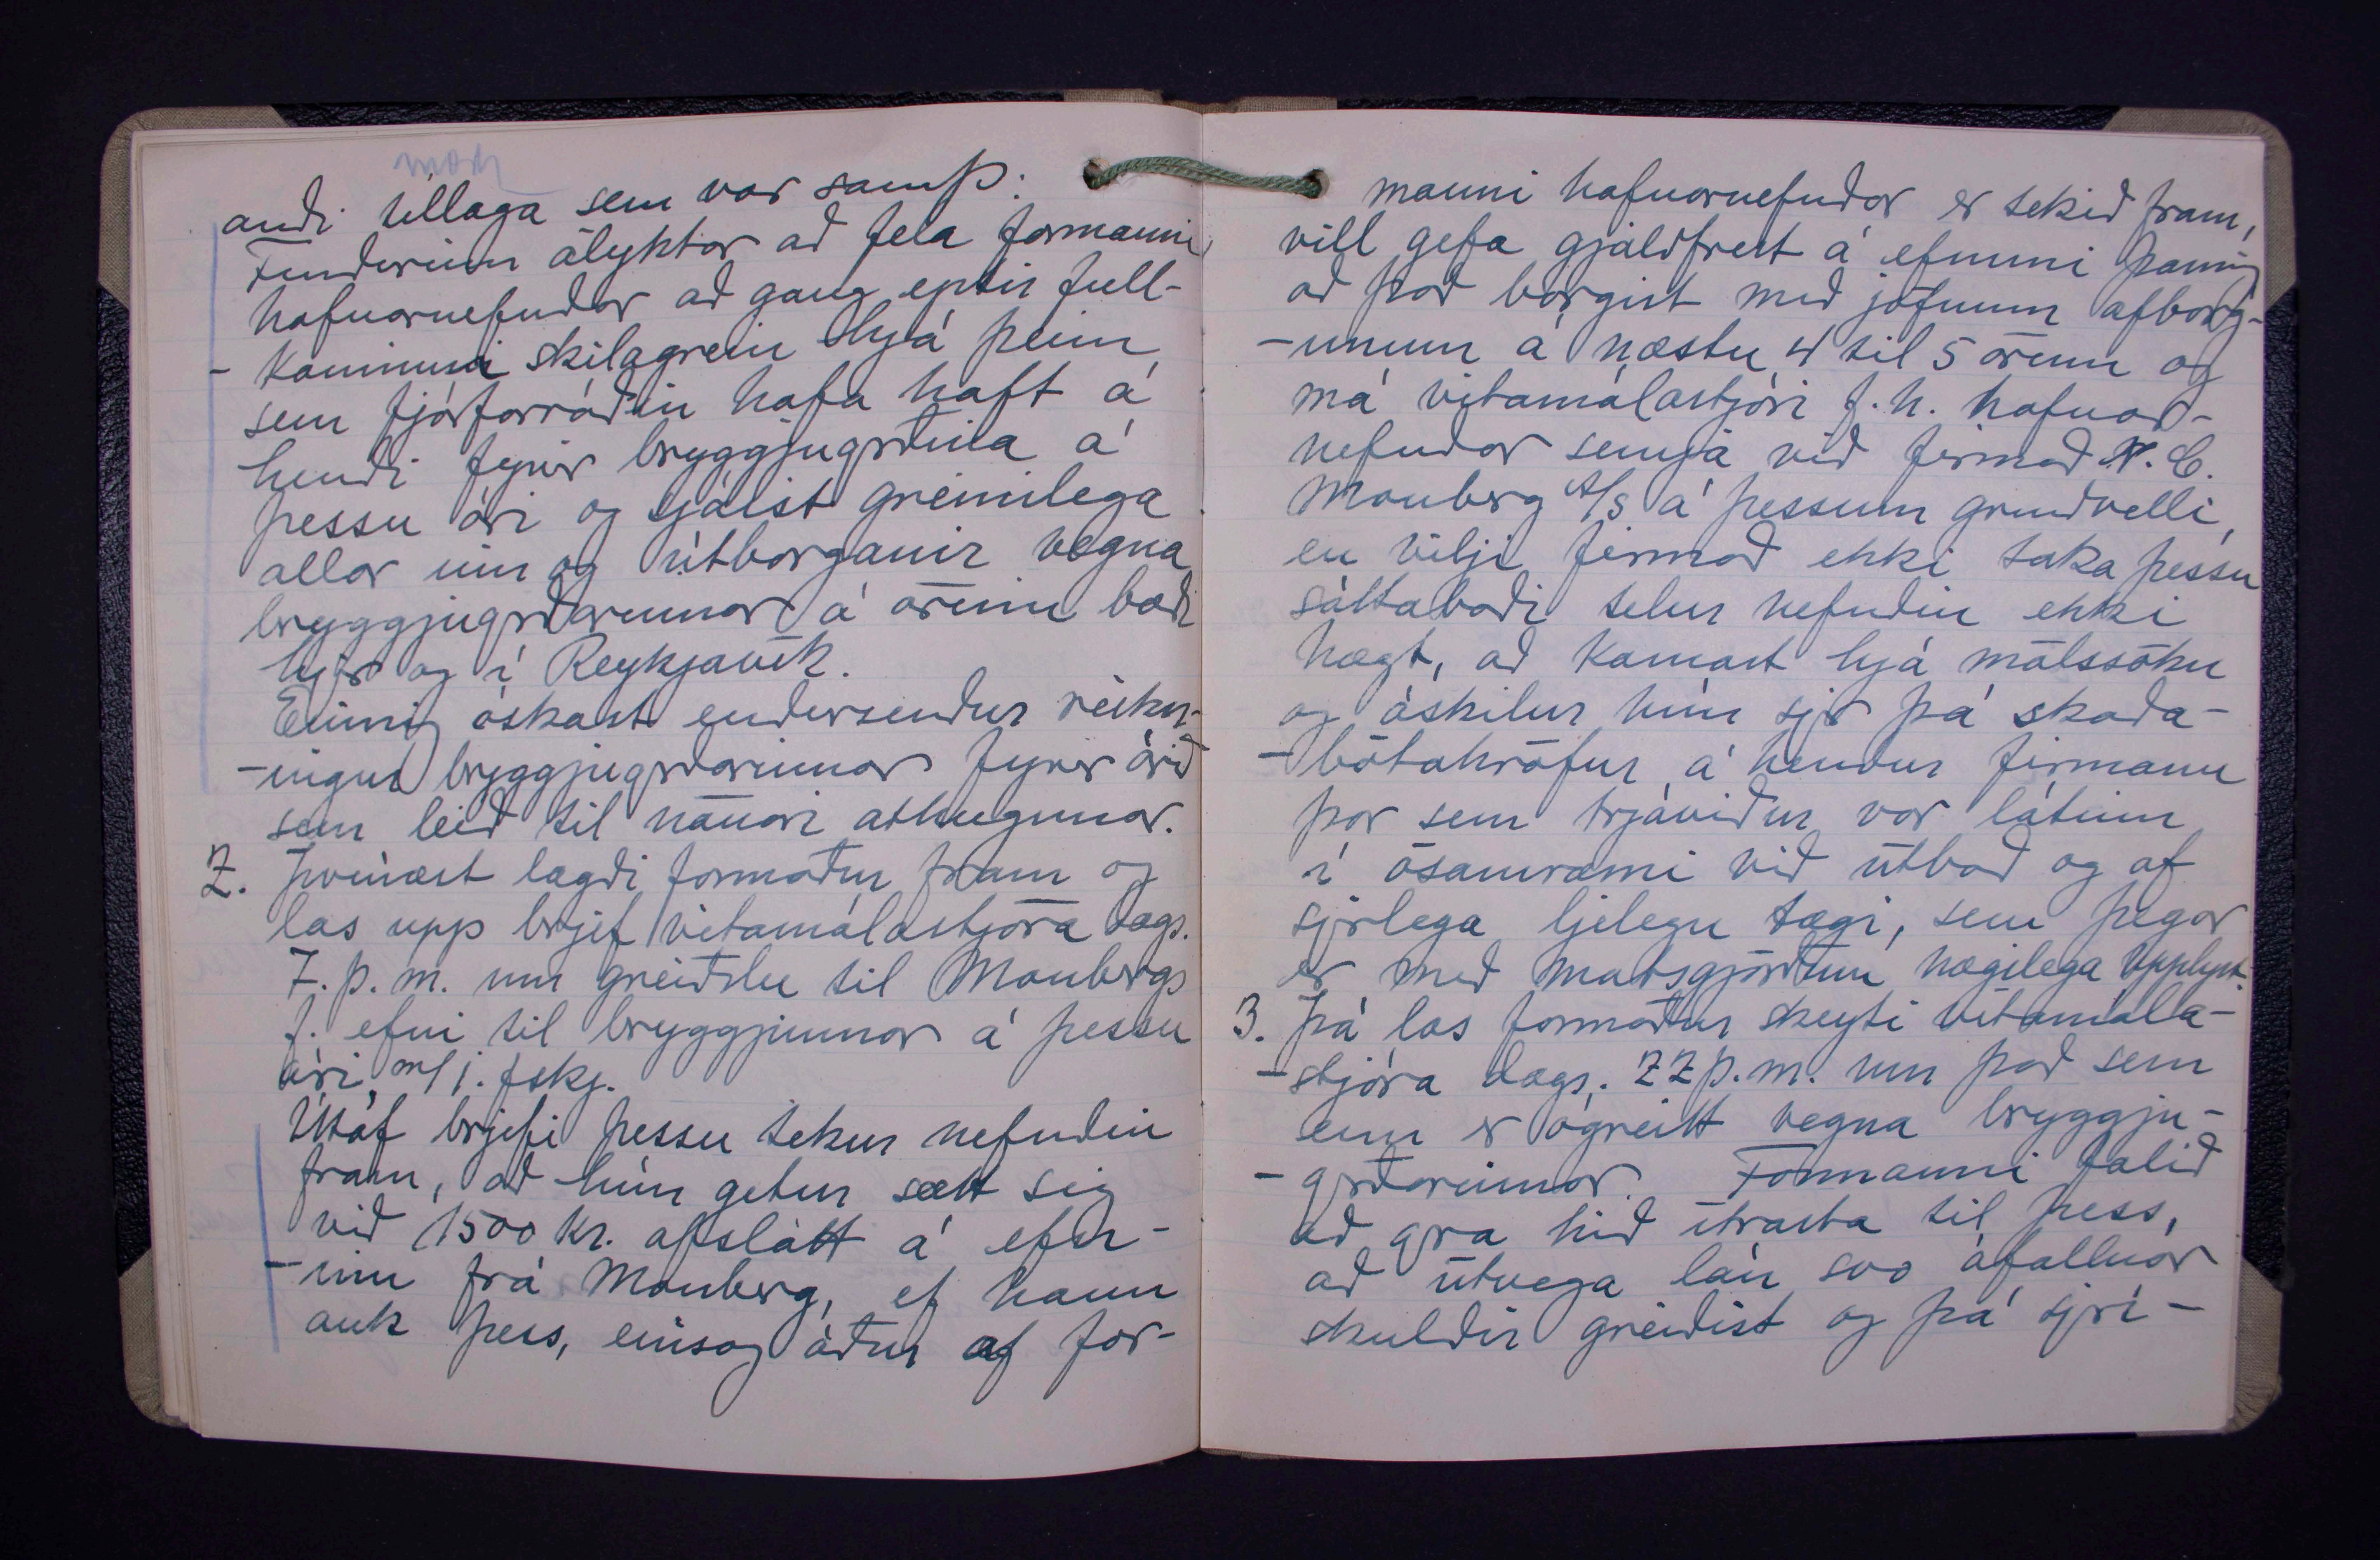 andi tillaga sem var samþ:
Fundurinn ályktar að fela formanni
hafnarnefndar að gang eptir full-
-kominni skilagrein hjá þeim
sem fjárforráðin hafa haft á
hendi fyrir bryggjugrðina á
þessu ári og sjáist greinilega
allar inn og útborganir vegna
bryggjugrðarinnar á árinu bæði
hjr og í Reykjavík.
Einnig óskast endursendur reikn-
-ingur bryggjugrðarinnar fyrir árið
sem leið til nánari athugunar.
2. Þvínæst lagði formaður fram og
las upp brjef vitamálastjóra dags.
7. þ. m. um greiðslu til Monbergs
f. efni til bryggjunnar á þessu
ári, m/ j. fskj.
Útaf brjefi þessu tekur nefndin
fram, að hún getur sætt sig
við 1500 kr. afslátt á efn-
-inu frá Monberg, ef hann
auk þess, einsog áður af for-
manni hafnarnefndar er tekið fram,
vill gefa gjaldfrest á efninu þannig
að það borgist með jöfnum afborg-
-unum á næstu 4 til 5 árum og
má vitamálastjóri f. h. hafnar-
nefndar semja við firmað N. C.
Monberg A/S á þessum grundvelli,
en vilji firmað ekki taka þessu
sáttaboði telur nefndin ekki
hægt, að komast hjá málssóku
og áskilur hún sjr þá skaða-
-bótakröfur á hendur firmanu
þar sem trjáviður var látinn
í ósamræmi við útboð og af
sjrlega ljelegu tægi, sem þegar
er með matsgjörðum nægilega upplyst.
3. Þá las formaður skeyti vitamála-
-stjóra dags. 22 þ. m. um það sem
enn er ógreitt vegna bryggju-
-grðarinnar. Formanni falið
að gra hið ítrasta til þess,
að útvega lán svo áfallnar
skuldir greiðist og þá sjrí-